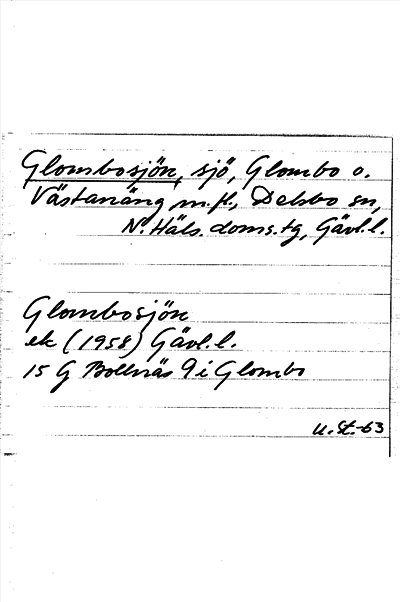 Glombosjön, sjö, Glombo o.
Västanäng m.fl., Delsbo sn,
N. Häls. doms. tg, Gävl. l.
Glombosjön
ek (1958) Gävl. l.
15 G Bollnäs 9 i Glombo
U. St. -63